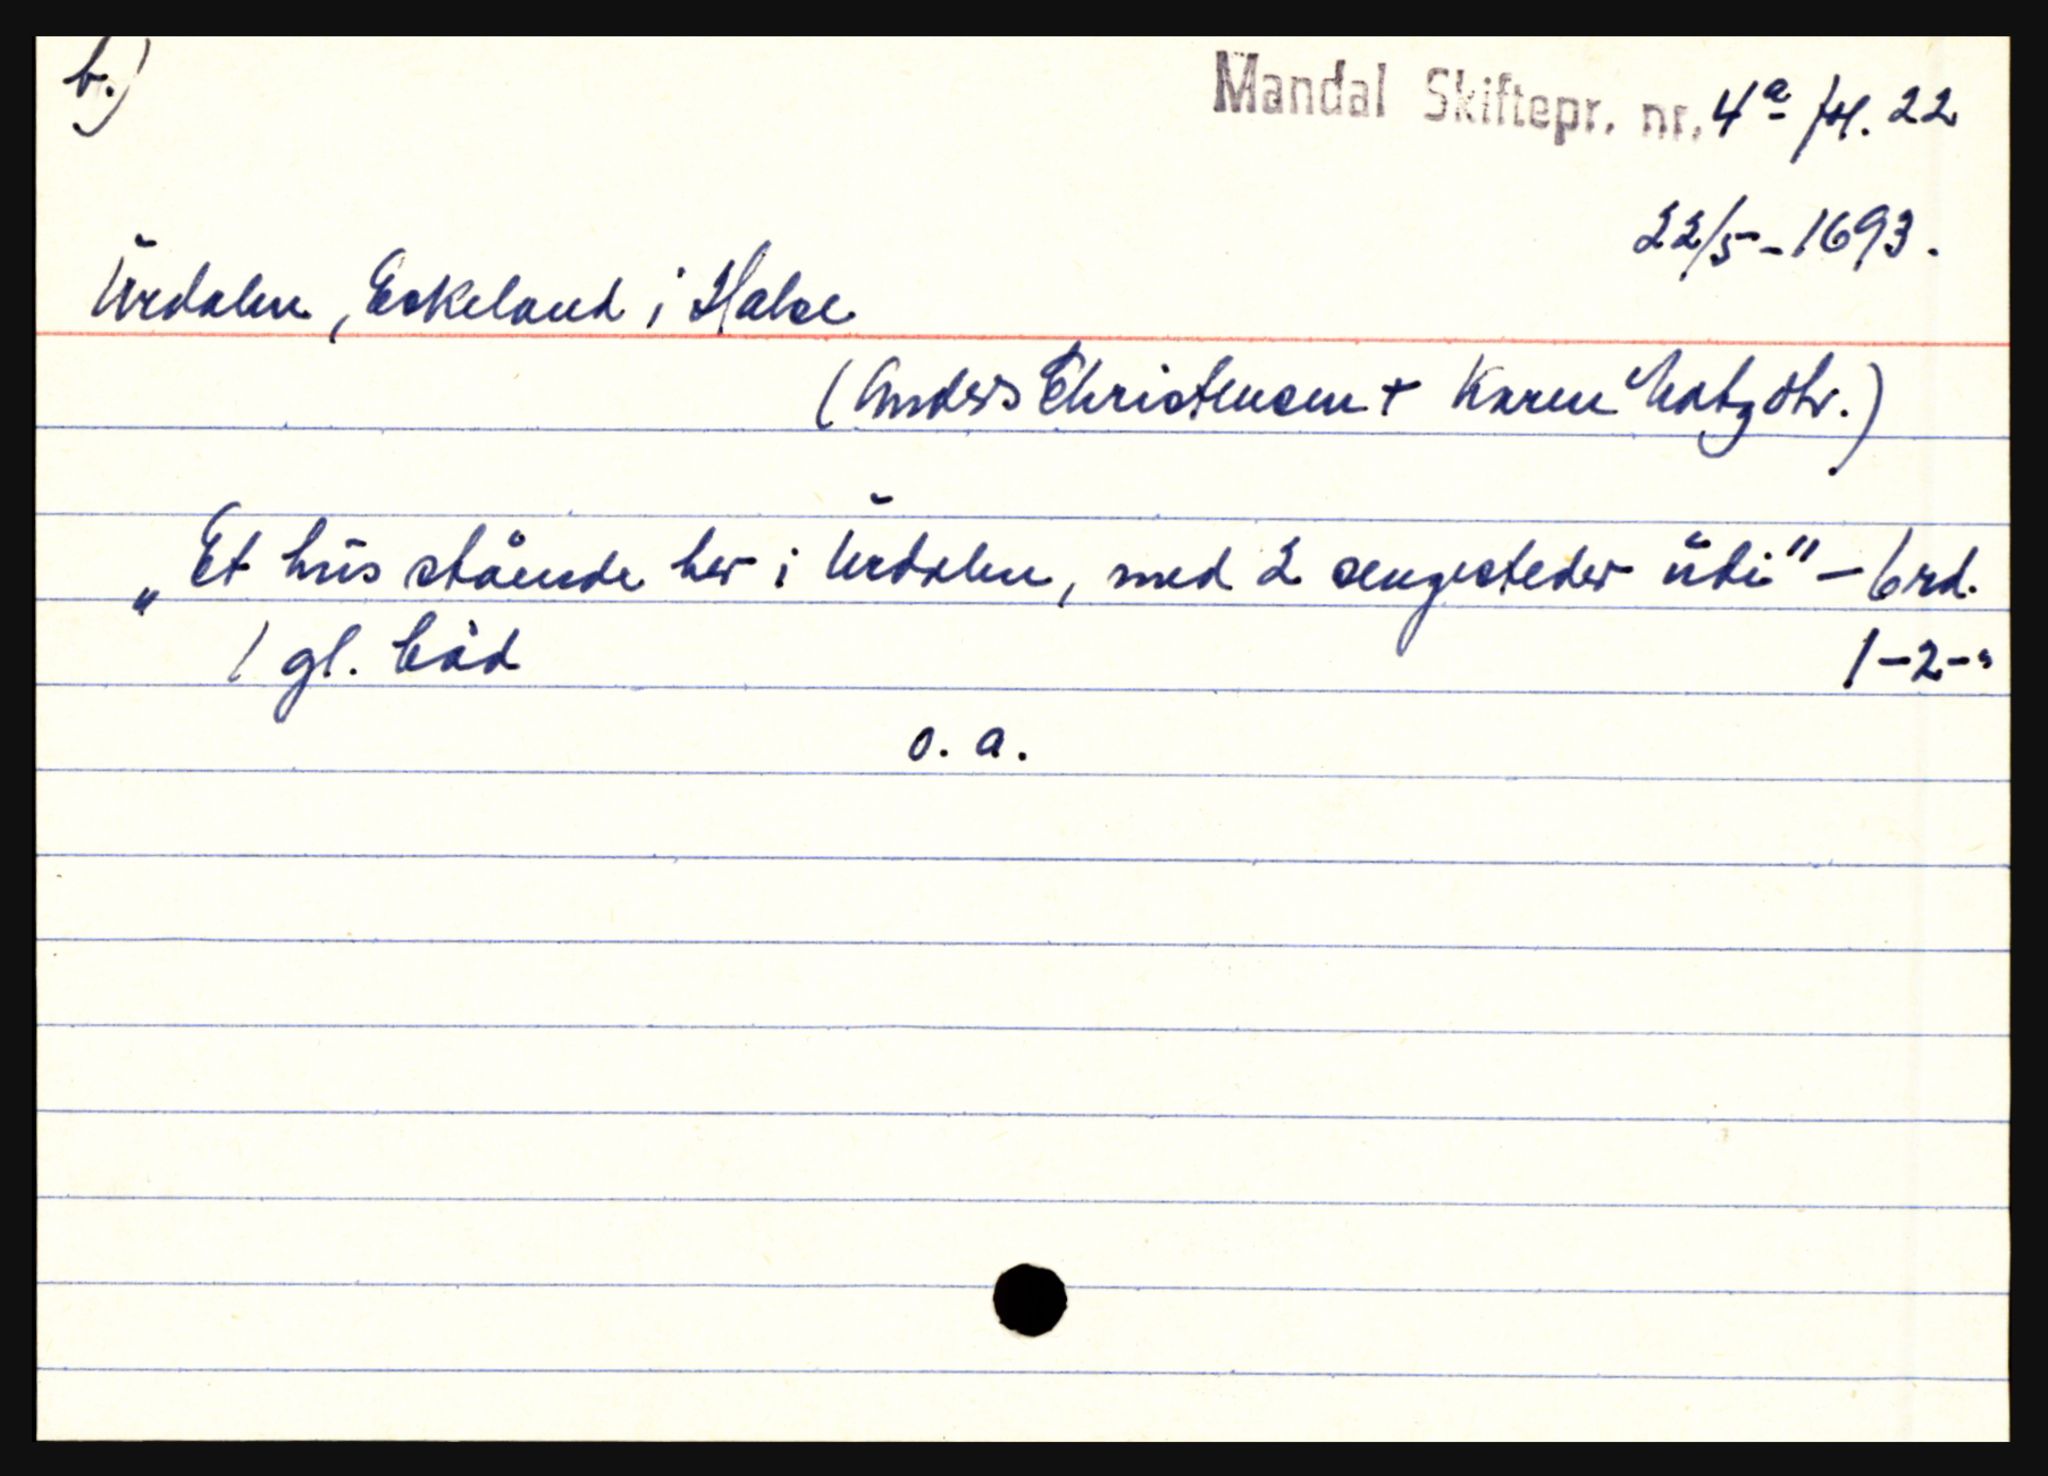 b.)
Mandal Skiftepr. nr. 4a fol. 22
22/5-1693.
Urdalen, Eskeland i Halse
(Anders Christensen + Karen dtr.)
„Et hus stående her i Urdalen, med 2 sengesteder udi" - 6 rd.
1 gl. båd 1-2-"
o. a.